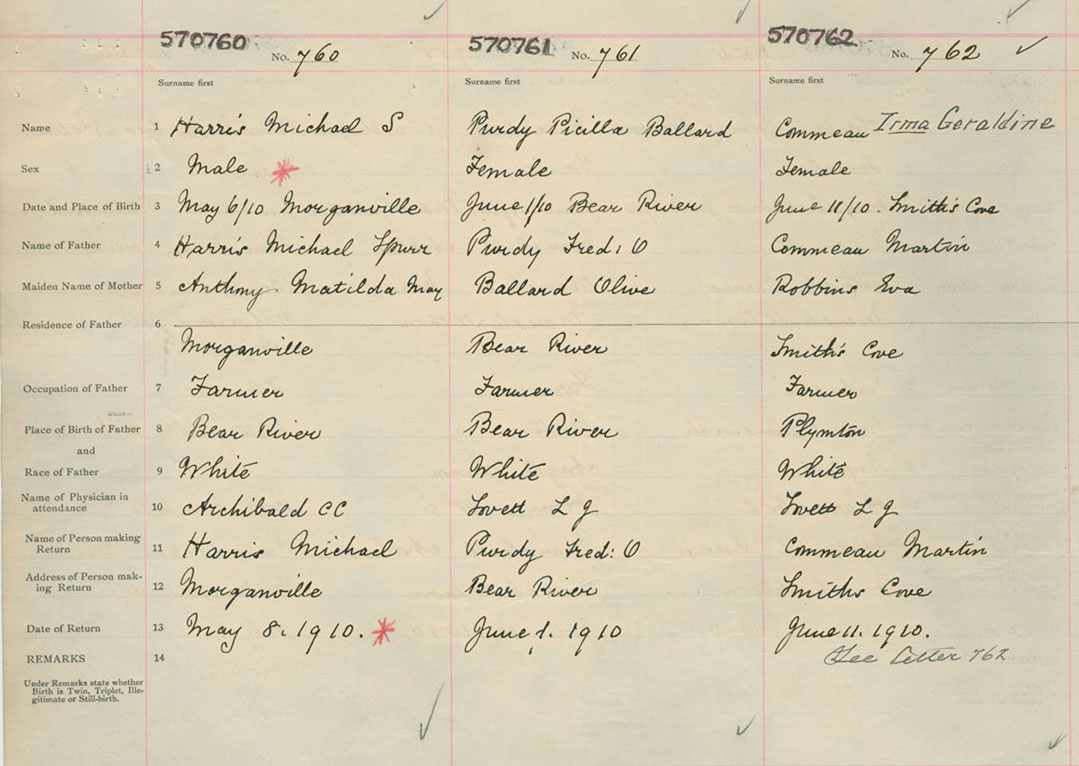 570760 570761 570762
No. 760 No. 761 No. 762
Surname first Surname first Surname first
Name 1 Harris Michael S Purdy Picilla Ballard Commeau Irma Geraldine
Sex 2 Male Female Female
Date and Place of Birth 3 May 6/10 Morganville June 1/10 Bear River June 11/10. Smith's Cove
Name of Father 4 Harris Michael Spurr Purdy Fred: O Commeau Martin
Maiden Name of Mother 5 Anthony Matilda May Ballard Olive Robbins Eva
Residence of Father 6
Morganville Bear River Smith's Cove
Occupation of Father 7 Farmer Farmer Farmer
Place of Birth of Father 8 Bear River Bear River Plymton
and
Race of Father 9 White White White
Name of Physician in
attendance 10 Archibald CC Lovett L G Lovett L G
Name of Person making
Return 11 Harris Michael Purdy Fred: O Commeau Martin
Address of Person mak-
ing Return 12 Morganville Bear River Smiths Cove
Date of Return 13 May 8. 1910. June 1. 1910 June 11. 1910.
REMARKS 14 See Letter 762
Under Remarks state whether
Birth is Twin, Triplet, Ille-
gitimate or Still-birth.